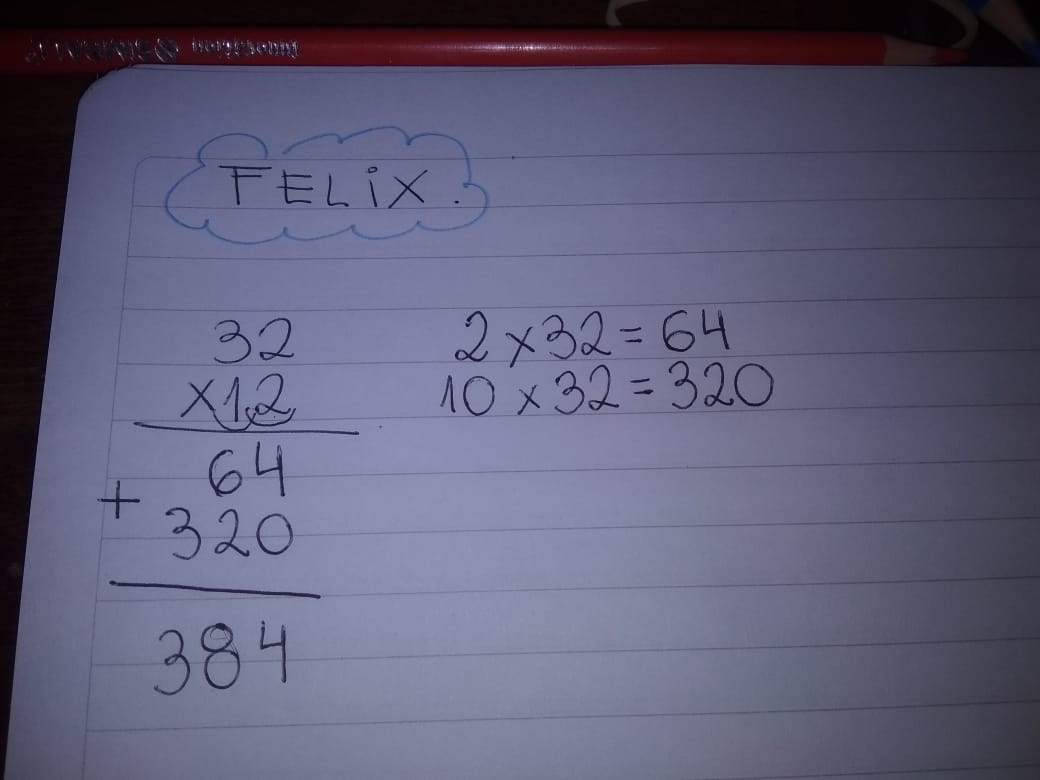 FELIX.
32
x12
64
+
320
384
2 x 32 = 64
10 x 32 = 320